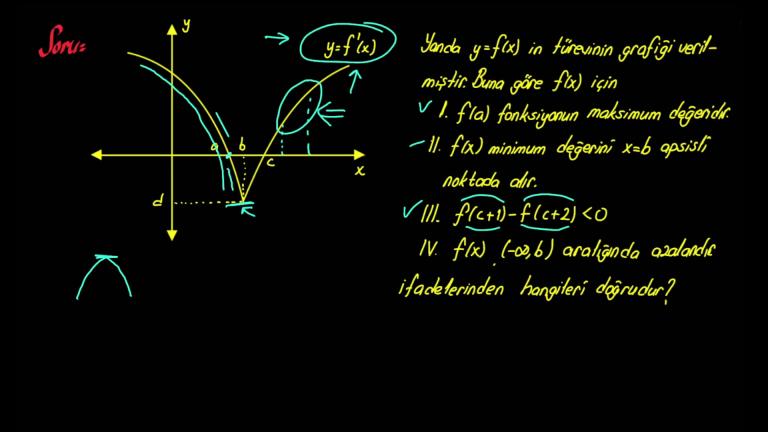 Soru=
y
y=f'(x)
a
b
c
x
d
Yanda y=f(x) in türevinin grafiği veril-
miştir. Buna göre f(x) için
I. f(a) fonksiyonun maksimum değeridir.
II. f(x) minimum değerini x=b apsisli
noktada alır.
III. f(c+1)-f(c+2)<0
IV. f(x) (-∞,b) aralığında azalandır
ifadelerinden hangileri doğrudur?